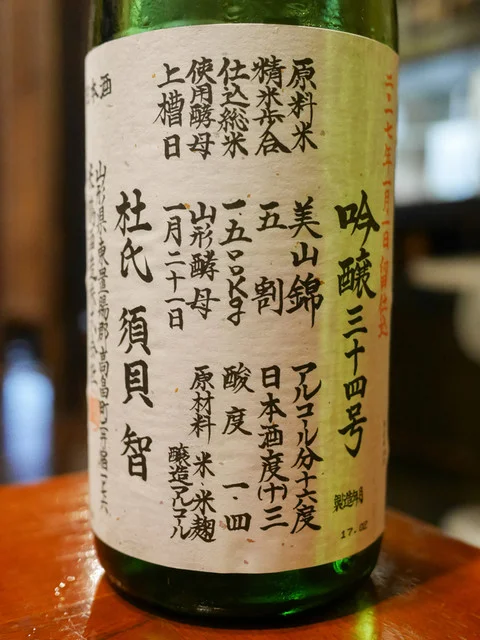 二〇一七年一月一日 留仕込
吟醸三十四号
製造年月
17.02
原料米 美山錦 アルコール分十六度
精米歩合 五割 日本酒度(十)三
仕込総米 一五〇〇kg 酸度 一・四
使用酵母 山形酵母 原材料 米・米麹
醸造アルコール
上槽日 一月二十一日
杜氏 須貝 智
山形県東置賜郡高畠町二井宿一七六
本酒